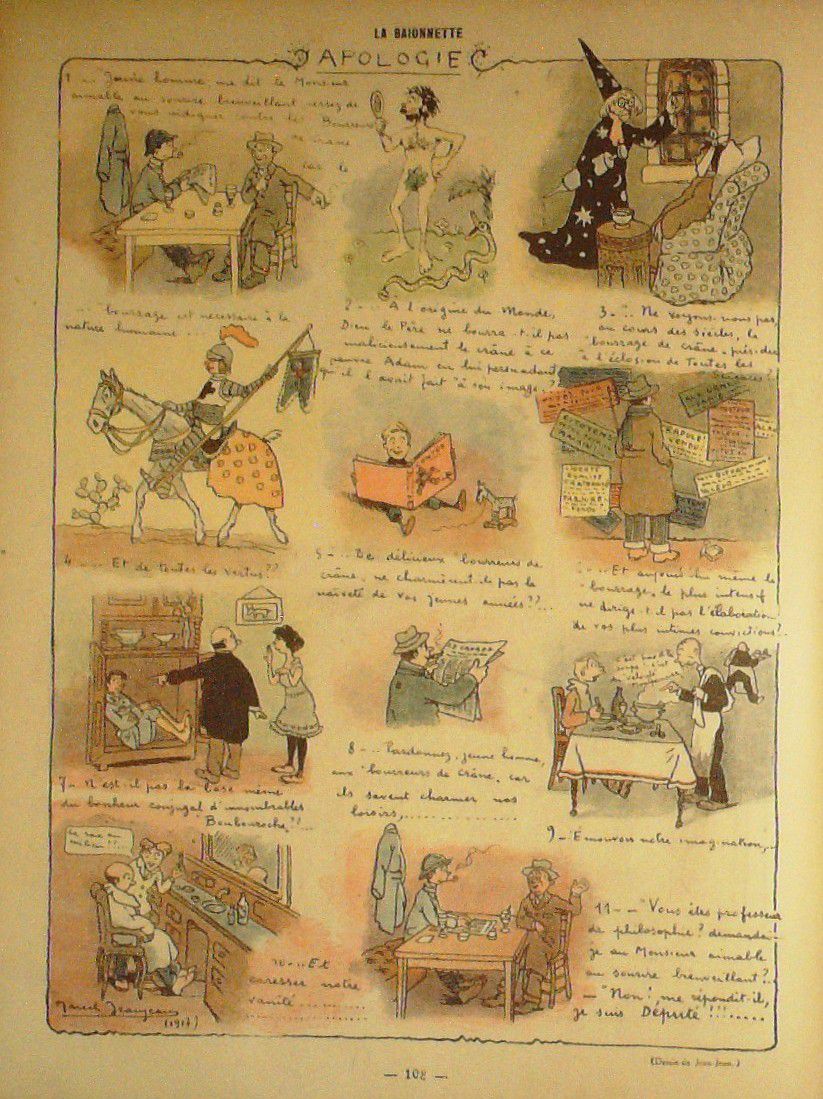 LA BAIONNETTE
APOLOGIE
1 — "Jeune homme, me dit le Monsieur
aimable au sourire bienveillant cessez de
vous indigner contre les Bourreurs
de crane
car le
... "bourrage est nécessaire à la
nature humaine ...
2 — ... A l'origine du Monde,
Dieu le Père ne bourra-t-il pas
malicieusement le crâne à ce
pauvre Adam en lui persuadant
qu'il l'avait fait "à son image"?
3 — ".. Ne voyons-nous pas,
au cours des siècles, le
bourrage de crâne, présider
à l'éclosion de Toutes les
Sciences?
4 ... Et de toutes les vertus??
5 — ... De délicieux "bourreurs de
crâne, ne charmèrent-ils pas la
naïveté de vos jeunes années??...
... Et aujourd'hui même le
"bourrage, le plus intensif
ne dirige-t-il pas l'élaboration
de vos plus intimes convictions?
CITOYENS
VENDU
7 — N'est-il pas la base même
du bonheur conjugal d'innombrables
"Boubouroche"??...
8 — ... Pardonnez, jeune homme,
aux "bourreurs de crâne, car
ils savent charmer nos
loisirs, ...........
9 — Emouvoir notre imagination, ..
La raie au
milieu ??...
10 — .. Et
caresser notre
vanité ...........
11 — — "Vous êtes professeur
de philosophie? demandai-
je au Monsieur aimable
au sourire bienveillant?..
— "Non!, me répondit-il,
je suis Député!!!......
Marcel Jeanjean
(1917)
(Dessin de Jean-Jean.)
— 108 —